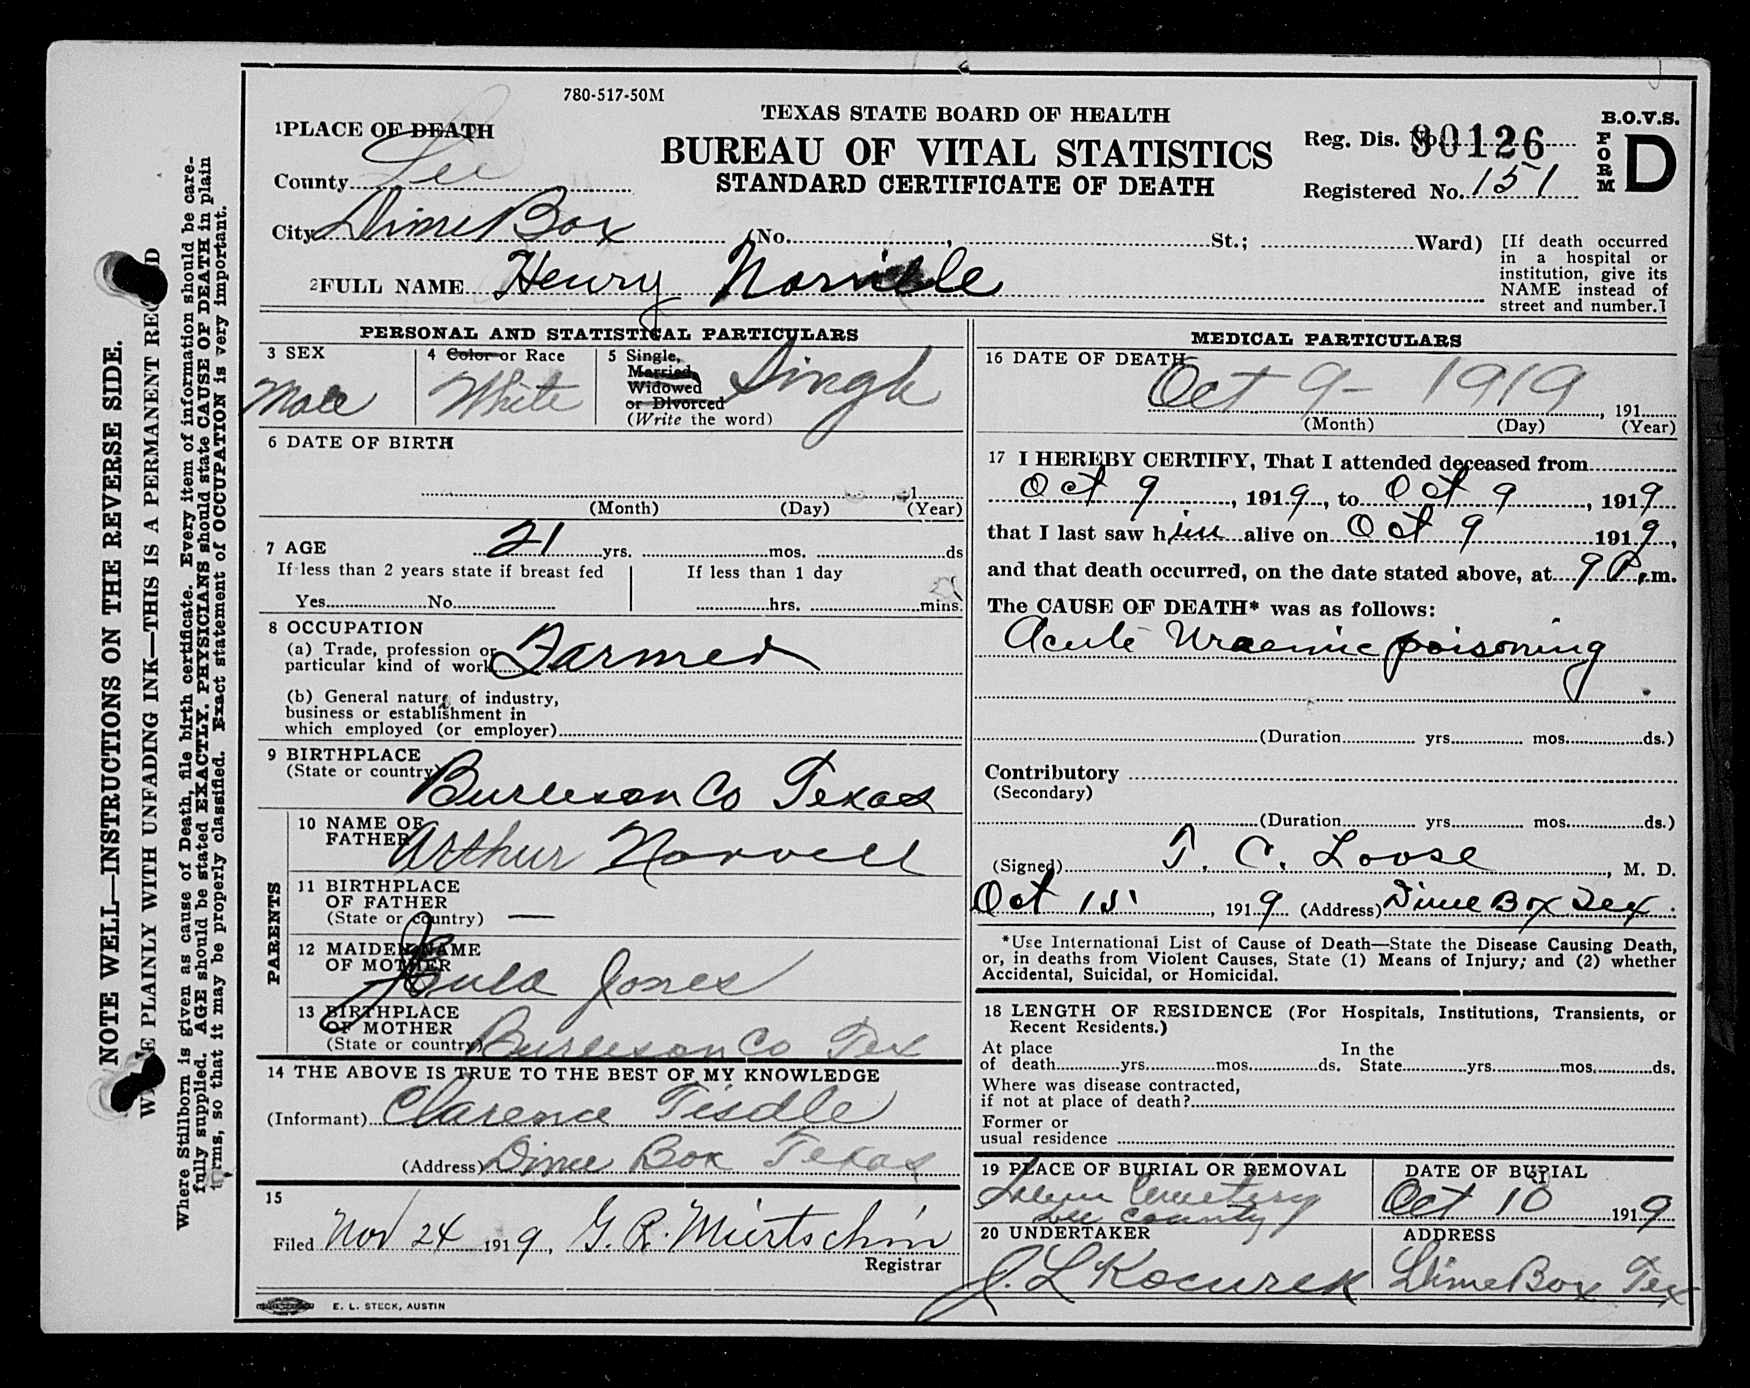 780-517-50M
TEXAS STATE BOARD OF HEALTH
BUREAU OF VITAL STATISTICS
STANDARD CERTIFICATE OF DEATH
B.O.V.S.
FORM D
Reg. Dis. No. 30126
Registered No. 151
1 PLACE OF DEATH
County Lee
City Dime Box (No. , St.; Ward)
[If death occurred
in a hospital or
institution, give its
NAME instead of
street and number.]
2 FULL NAME Henry
PERSONAL AND STATISTICAL PARTICULARS
3 SEX
Male
4 Color or Race
White
5 Single,
Married
Widowed
or Divorced
(Write the word)
Single
6 DATE OF BIRTH
, 1
(Month) (Day) (Year)
7 AGE 21 yrs. mos. ds
If less than 2 years state if breast fed
Yes No
If less than 1 day
hrs. mins.
8 OCCUPATION
(a) Trade, profession or
particular kind of work Farmer
(b) General nature of industry,
business or establishment in
which employed (or employer)
9 BIRTHPLACE
(State or country) Burleson Co Texas
PARENTS
10 NAME OF
FATHER Arthur Norvell
11 BIRTHPLACE
OF FATHER
(State or country) —
12 MAIDEN NAME
OF MOTHER Beula Jones
13 BIRTHPLACE
OF MOTHER
(State or country) Burleson Co Tex
14 THE ABOVE IS TRUE TO THE BEST OF MY KNOWLEDGE
(Informant) Clarence Tisdle
(Address) Dime Box Texas
15
Filed Nov 24 1919, G. R. Miertschin
Registrar
E. L. STECK, AUSTIN
MEDICAL PARTICULARS
16 DATE OF DEATH
Oct 9 - 1919 , 191
(Month) (Day) (Year)
17 I HEREBY CERTIFY, That I attended deceased from
Oct 9, 1919, to Oct 9, 1919
that I last saw him alive on Oct 9 1919,
and that death occurred, on the date stated above, at 9 P.m.
The CAUSE OF DEATH* was as follows:
Acute Uraemic poisoning
(Duration yrs. mos. ds.)
Contributory
(Secondary)
(Duration yrs. mos. ds.)
(Signed) T. C. Loose, M. D.
Oct 15, 1919 (Address) Dime Box Tex.
*Use International List of Cause of Death—State the Disease Causing Death,
or, in deaths from Violent Causes, State (1) Means of Injury; and (2) whether
Accidental, Suicidal, or Homicidal.
18 LENGTH OF RESIDENCE (For Hospitals, Institutions, Transients, or
Recent Residents.)
At place In the
of death yrs. mos. ds. State yrs. mos. ds.
Where was disease contracted,
if not at place of death?
Former or
usual residence
19 PLACE OF BURIAL OR REMOVAL
Cemetery
Lee County
DATE OF BURIAL
Oct 10 1919
20 UNDERTAKER
J. L. Kocurek
ADDRESS
Dime Box Tex
NOTE WELL—INSTRUCTIONS ON THE REVERSE SIDE.
PLAINLY WITH UNFADING INK—THIS IS A PERMANENT
Where Stillborn is given as cause of Death, file birth certificate. Every item of information should be care-
fully supplied. AGE should be stated EXACTLY. PHYSICIANS should state CAUSE OF DEATH in plain
terms, so that it may be properly classified. Exact statement of OCCUPATION is very important.